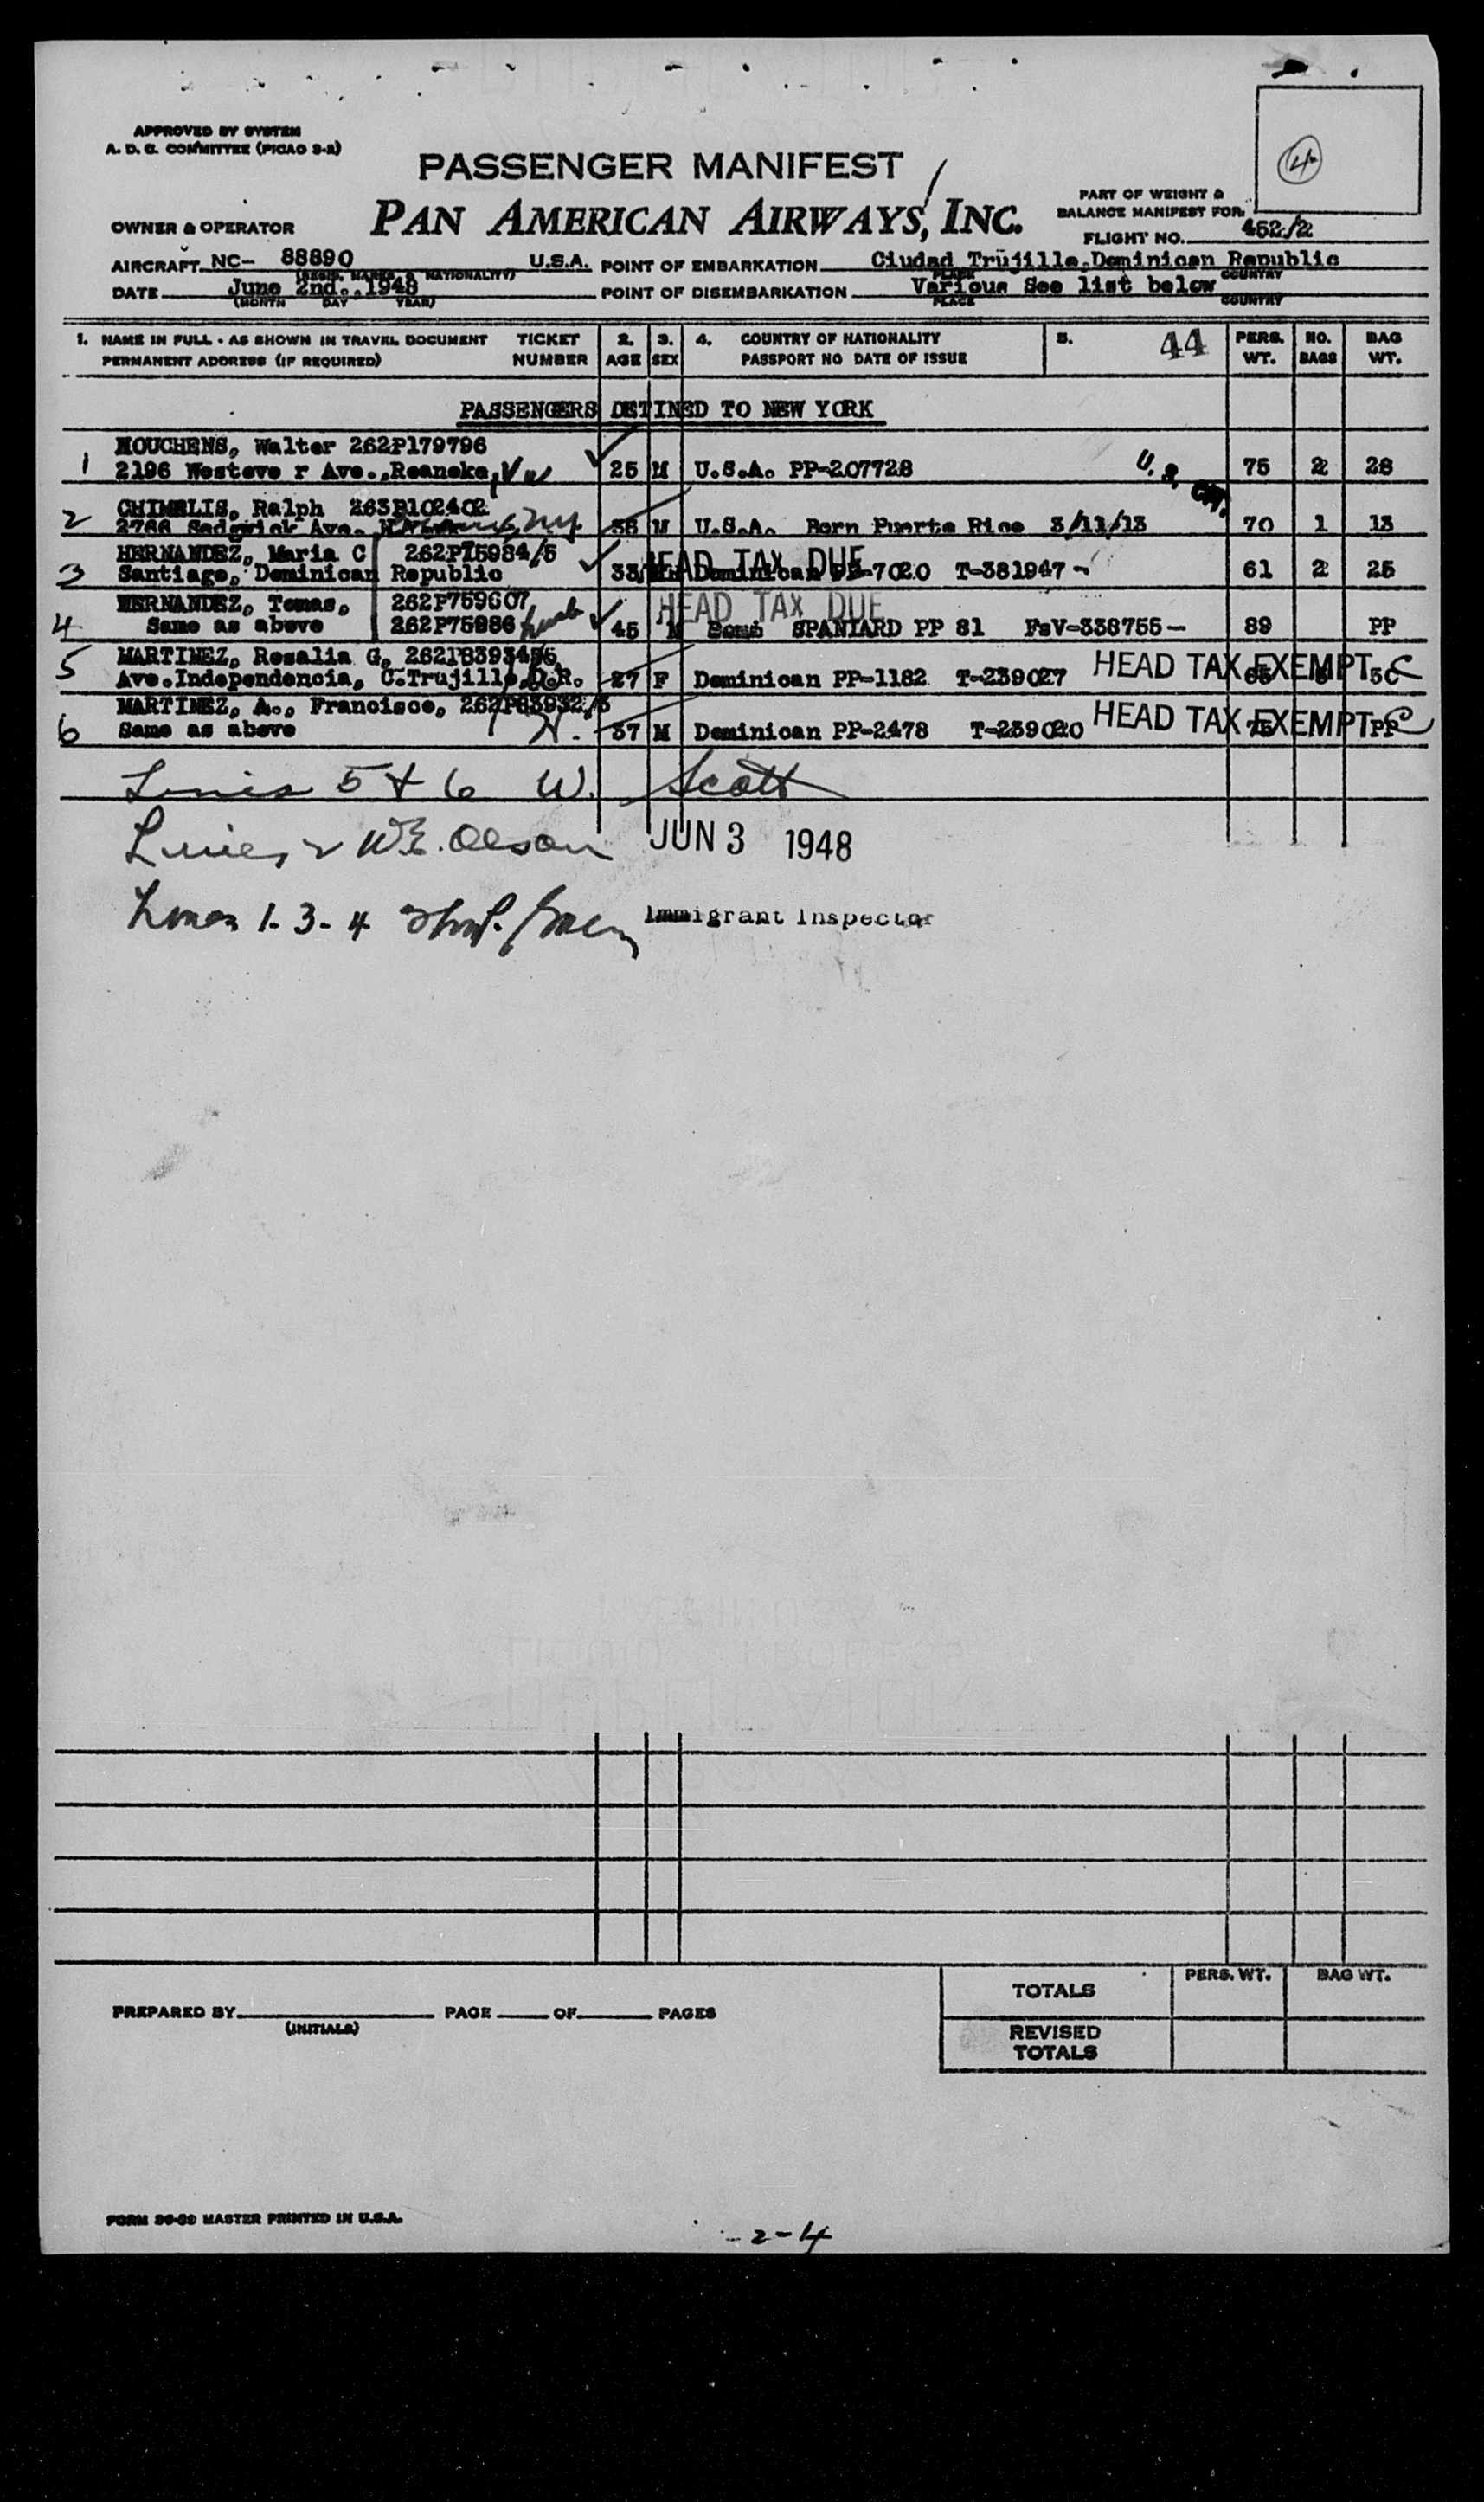 APPROVED BY SYSTEM
A. D. C. COMMITTEE (PICAO 3-2)
4
PASSENGER MANIFEST
PAN AMERICAN AIRWAYS, INC.
PART OF WEIGHT &
BALANCE MANIFEST FOR:
OWNER & OPERATOR
FLIGHT NO. 452/2
AIRCRAFT NC- 88890 U.S.A. POINT OF EMBARKATION Ciudad Trujillo, Dominican Republic
(REGIS. MARKS & NATIONALITY) PLACE COUNTRY
DATE June 2nd., 1948 POINT OF DISEMBARKATION Various See list below
(MONTH DAY YEAR) PLACE COUNTRY
1. NAME IN FULL - AS SHOWN IN TRAVEL DOCUMENT TICKET 2. 3. 4. COUNTRY OF NATIONALITY 5. 44 PERS. NO. BAG
PERMANENT ADDRESS (IF REQUIRED) NUMBER AGE SEX PASSPORT NO DATE OF ISSUE WT. BAGS WT.
PASSENGERS DETINED TO NEW YORK
HOUCHENS, Walter 262P179796
1 2196 Westove r Ave., Roanoke, Va 25 M U.S.A. PP-207728 U.S. CIT. 75 2 28
CHIMELIS, Ralph 263P102402
2 2766 Sedgwick Ave. NY 36 M U.S.A. Born Puerto Rico 3/11/13 70 1 13
HERNANDEZ, Maria C 262P75984/5 HEAD TAX DUE
3 Santiago, Dominican Republic 33 Dominican PP-7020 T-381947- 61 2 25
HERNANDEZ, Tomas, 262P759607 HEAD TAX DUE
4 Same as above 262P75986 husb 45 M SPANIARD PP 81 FsV-338755- 89 PP
MARTINEZ, Rosalia G, HEAD TAX EXEMPT
5 Ave. Independencia, C. Trujillo, D.R. 27 F Dominican PP-1182 T-239027
MARTINEZ, A., Francisco, HEAD TAX EXEMPT
6 Same as above H. 37 M Dominican PP-2478 T-239020 75 PP
Lines 5 & 6 W. Scott
Lines 2 W.E. Olson JUN 3 1948
Lines 1-3-4 Immigrant Inspector
TOTALS PERS. WT. BAG WT.
PREPARED BY PAGE OF PAGES
(INITIALS)
REVISED
TOTALS
FORM MASTER PRINTED IN U.S.A.
-2-4